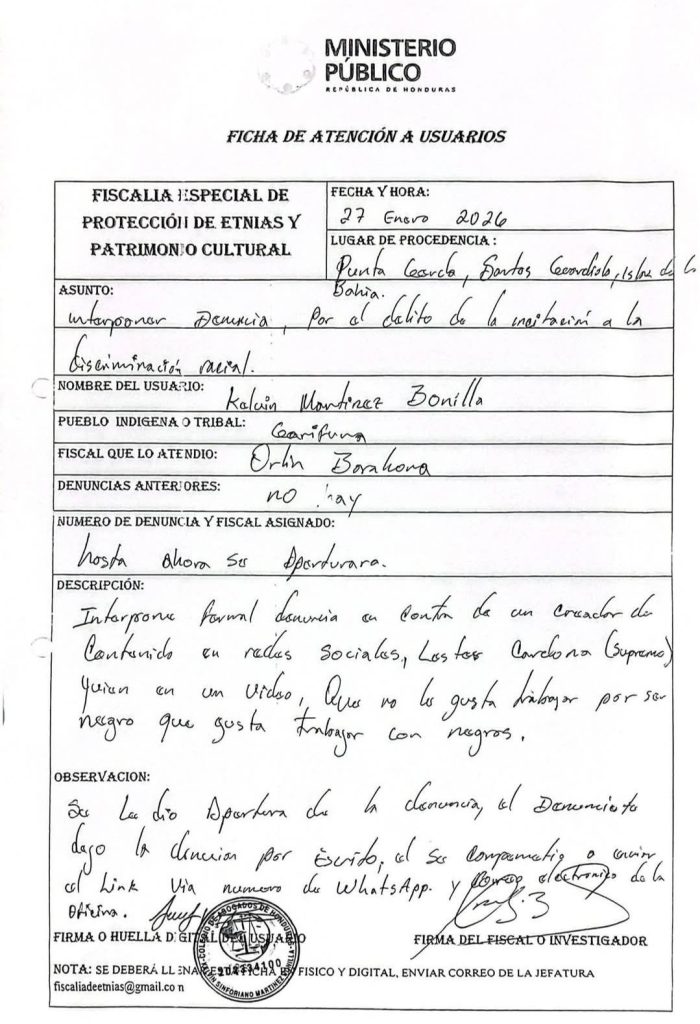 MINISTERIO
PÚBLICO
REPÚBLICA DE HONDURAS
FICHA DE ATENCIÓN A USUARIOS
FISCALIA ESPECIAL DE
PROTECCIÓN DE ETNIAS Y
PATRIMONIO CULTURAL
FECHA Y HORA:
27 Enero 2026
LUGAR DE PROCEDENCIA :
Punta Gorda, Santos Guardiola, Islas de la
Bahia.
ASUNTO:
Interponer Denuncia, Por el delito de la incitación a la
discriminación racial.
NOMBRE DEL USUARIO:
Kelvin Martinez Bonilla
PUEBLO INDIGENA O TRIBAL:
Garifuna
FISCAL QUE LO ATENDIO:
Orlin Barahona
DENUNCIAS ANTERIORES:
no hay
NUMERO DE DENUNCIA Y FISCAL ASIGNADO:
hasta ahora se Aperturara.
DESCRIPCIÓN:
Interpone formal denuncia en contra de un creador de
Contenido en redes Sociales, Lester Cardona (Supremo)
quien en un video, Que no le gusta trabajar por ser
negro que gusta trabajar con negros.
OBSERVACION:
Se le dio Apertura de la denuncia, el Denunciante
dejo la denuncia por Escrito, el se a enviar
el Link via numero de WhatsApp. y Correo electronico de la
Oficina.
FIRMA O HUELLA DIGITAL DEL USUARIO
FIRMA DEL FISCAL O INVESTIGADOR
COLEGIO DE ABOGADOS DE HONDURAS
KELVIN SINFORIANO MARTINEZ BONILLA
NOTA: SE DEBERÁ LLENAR ESTA FICHA EN FISICO Y DIGITAL, ENVIAR CORREO DE LA JEFATURA
fiscaliadeetnias@gmail.com